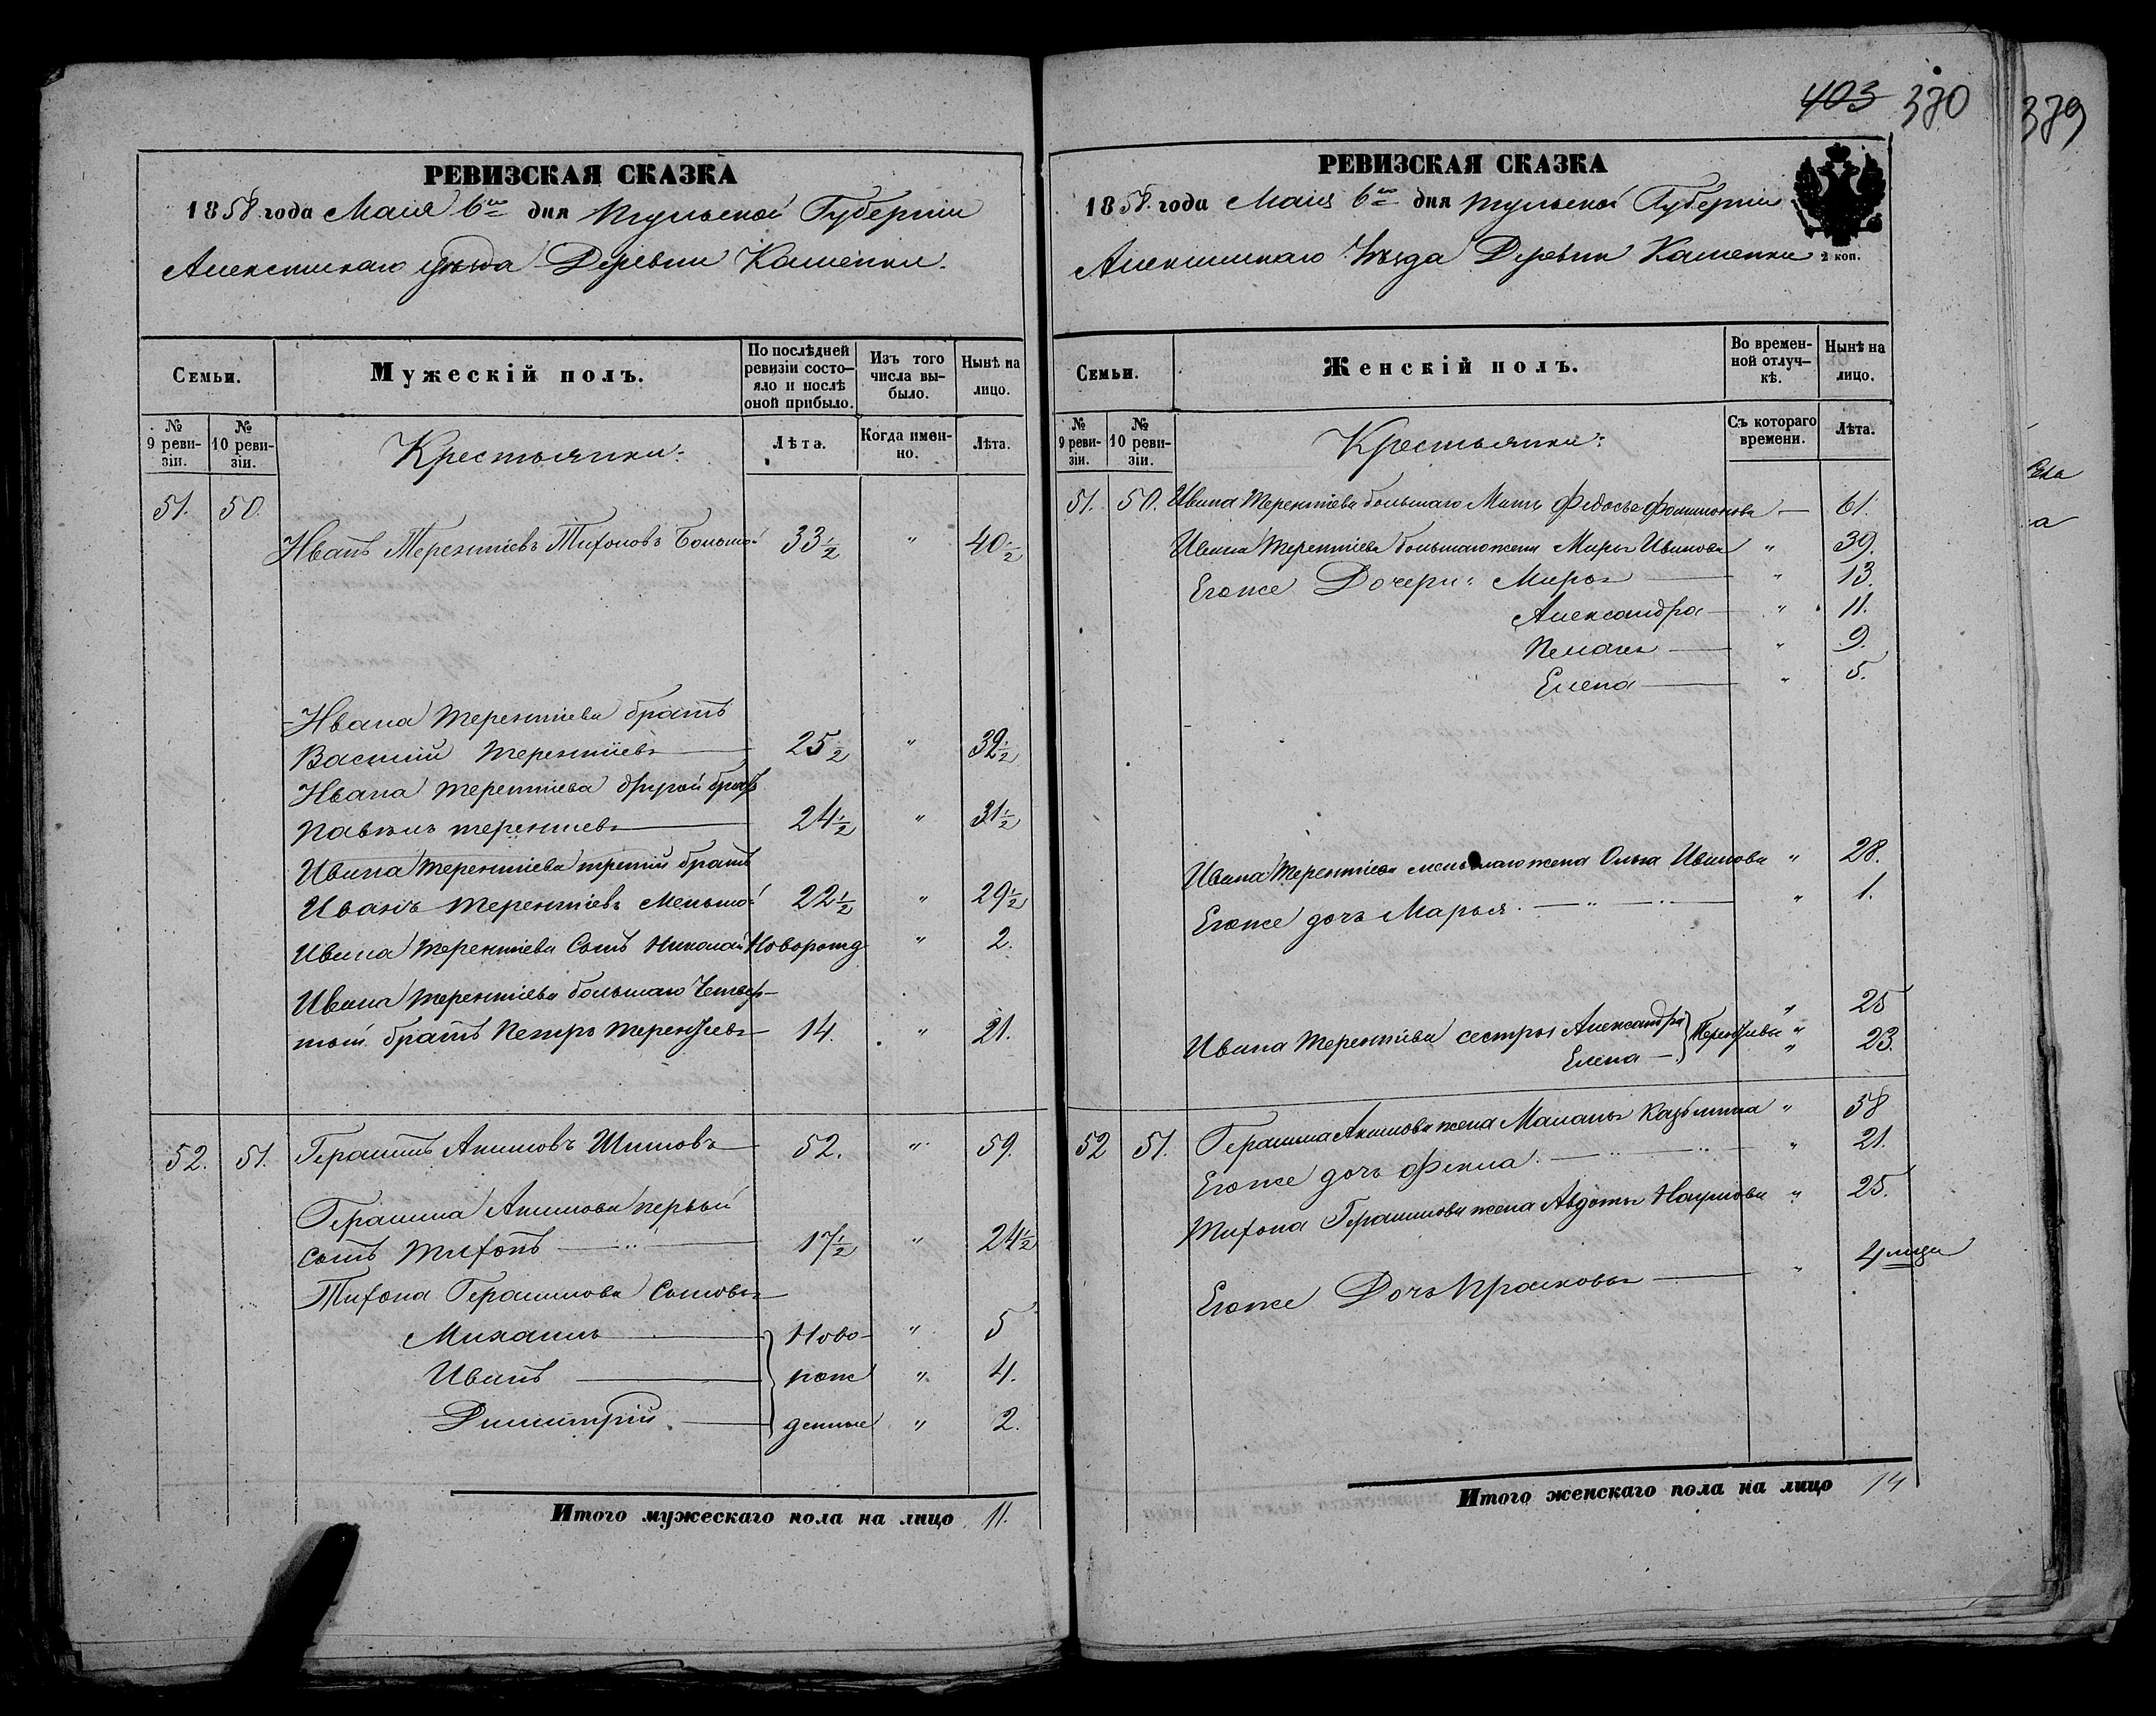 РЕВИЗСКАЯ СКАЗКА
1858 года Маия 6го дня Тульской Губернии
Алексинскаго уѣзда Деревни Каменки.
Семьи.
Мужескій полъ.
По послѣдней ревизіи состояло и послѣ оной прибыло.
Изъ того числа выбыло.
Нынѣ на лицо.
№ 9 ревизіи.
№ 10 ревизіи.
Крестьянки:
Лѣта.
Когда именно.
Лѣта.
51. 50.
Иванъ Терентіевъ Тихоновъ Большой 33½ " 40½
Ивана Терентіева братъ
Василий Терентіевъ 25½ " 32½
Ивана Терентіева другой братъ
Павелъ Терентіевъ 24½ " 31½
Ивана Терентіева третий братъ
Иванъ Терентіевъ Меньшой 22½ " 29½
Ивана Терентіева Сынъ Николай Новорожд " 2.
Ивана Терентіева большаго Четвер-
тый братъ Петръ Терентьевъ 14. " 21.
52. 51. Герасимъ Акимовъ Шиловъ 52. " 59.
Герасима Акимова первый
сынъ Тихонъ 17½ " 24½
Тихона Герасимова Сыновья
Михаилъ Ново- " 5
Иванъ рож " 4.
Димитрий денные " 2.
Итого мужескаго пола на лицо 11.
403 370
РЕВИЗСКАЯ СКАЗКА
1858 года Маия 6го дня Тульской Губернии
Алексинскаго Уѣзда Деревни Каменки
2 коп.
Семьи.
Женскій полъ.
Во временной отлучкѣ.
Нынѣ на лицо.
№ 9 ревизіи.
№ 10 ревизіи.
Крестьянки:
Съ котораго времени.
Лѣта.
51. 50. Ивана Терентіева большаго Мать Федосья 61.
Ивана Терентіева большаго жена Марья Иванова " 39.
Егоже Дочери: Марья " 13.
Александра " 11.
Пелагея " 9.
Елена " 5.
Ивана Терентіева меньшаго жена Ольга Иванова " 28.
Егоже дочь Марья " 1.
Ивана Терентіева сестры Александра Терентьевы " 25
Елена " 23.
52 51. Герасима Акимова жена Маланья Казьмина " 58
Егоже дочь Фекла " 21.
Тихона Герасимова жена Авдотья Наумова " 25.
Егоже Дочь Прасковья " 4
Итого женскаго пола на лицо 14
379